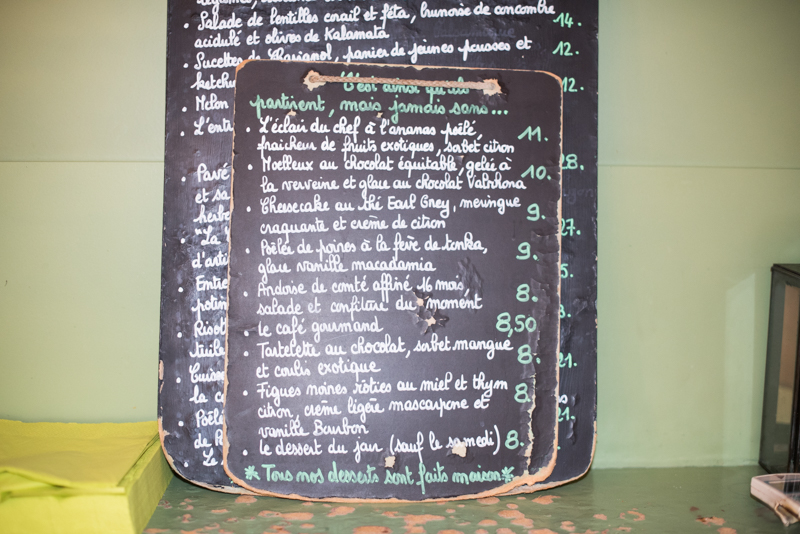 Salade de lentilles corail et féta, brunoise de concombre 14.
acidulé et olives de Kalamata
Sucettes de Charignol, panier de jeunes pousses et 12.
ketchu
Melon
L'entr
12.
28.
Pavé
et sa
herbe
27.
"La
d'arti
Entre
potim
Risot
tuile
21.
Cuiss
la c
Poêlé
de R
21.
Le
C'est ainsi qu'ils
partirent, mais jamais sans...
• L'éclair du chef à l'ananas poêlé, 11.
fraicheur de fruits exotiques, sorbet citron
• Moelleux au chocolat équitable, gelée à 10.
la verveine et glace au chocolat Valrhona
• Cheesecake au thé Earl Grey, meringue 9.
craquante et crème de citron
• Poêlée de poires à la fève de tonka, 9.
glace vanille macadamia
• Ardoise de comté affiné 16 mois, 8.
salade et confiture du moment
• Le café gourmand 8,50
• Tartelette au chocolat, sorbet mangue 8.
et coulis exotique
• Figues noires rôties au miel et thym 8.
citron, crème ligère mascarpone et
vanille Bourbon
• le dessert du jour (sauf le samedi) 8.
*Tous nos desserts sont faits maison*